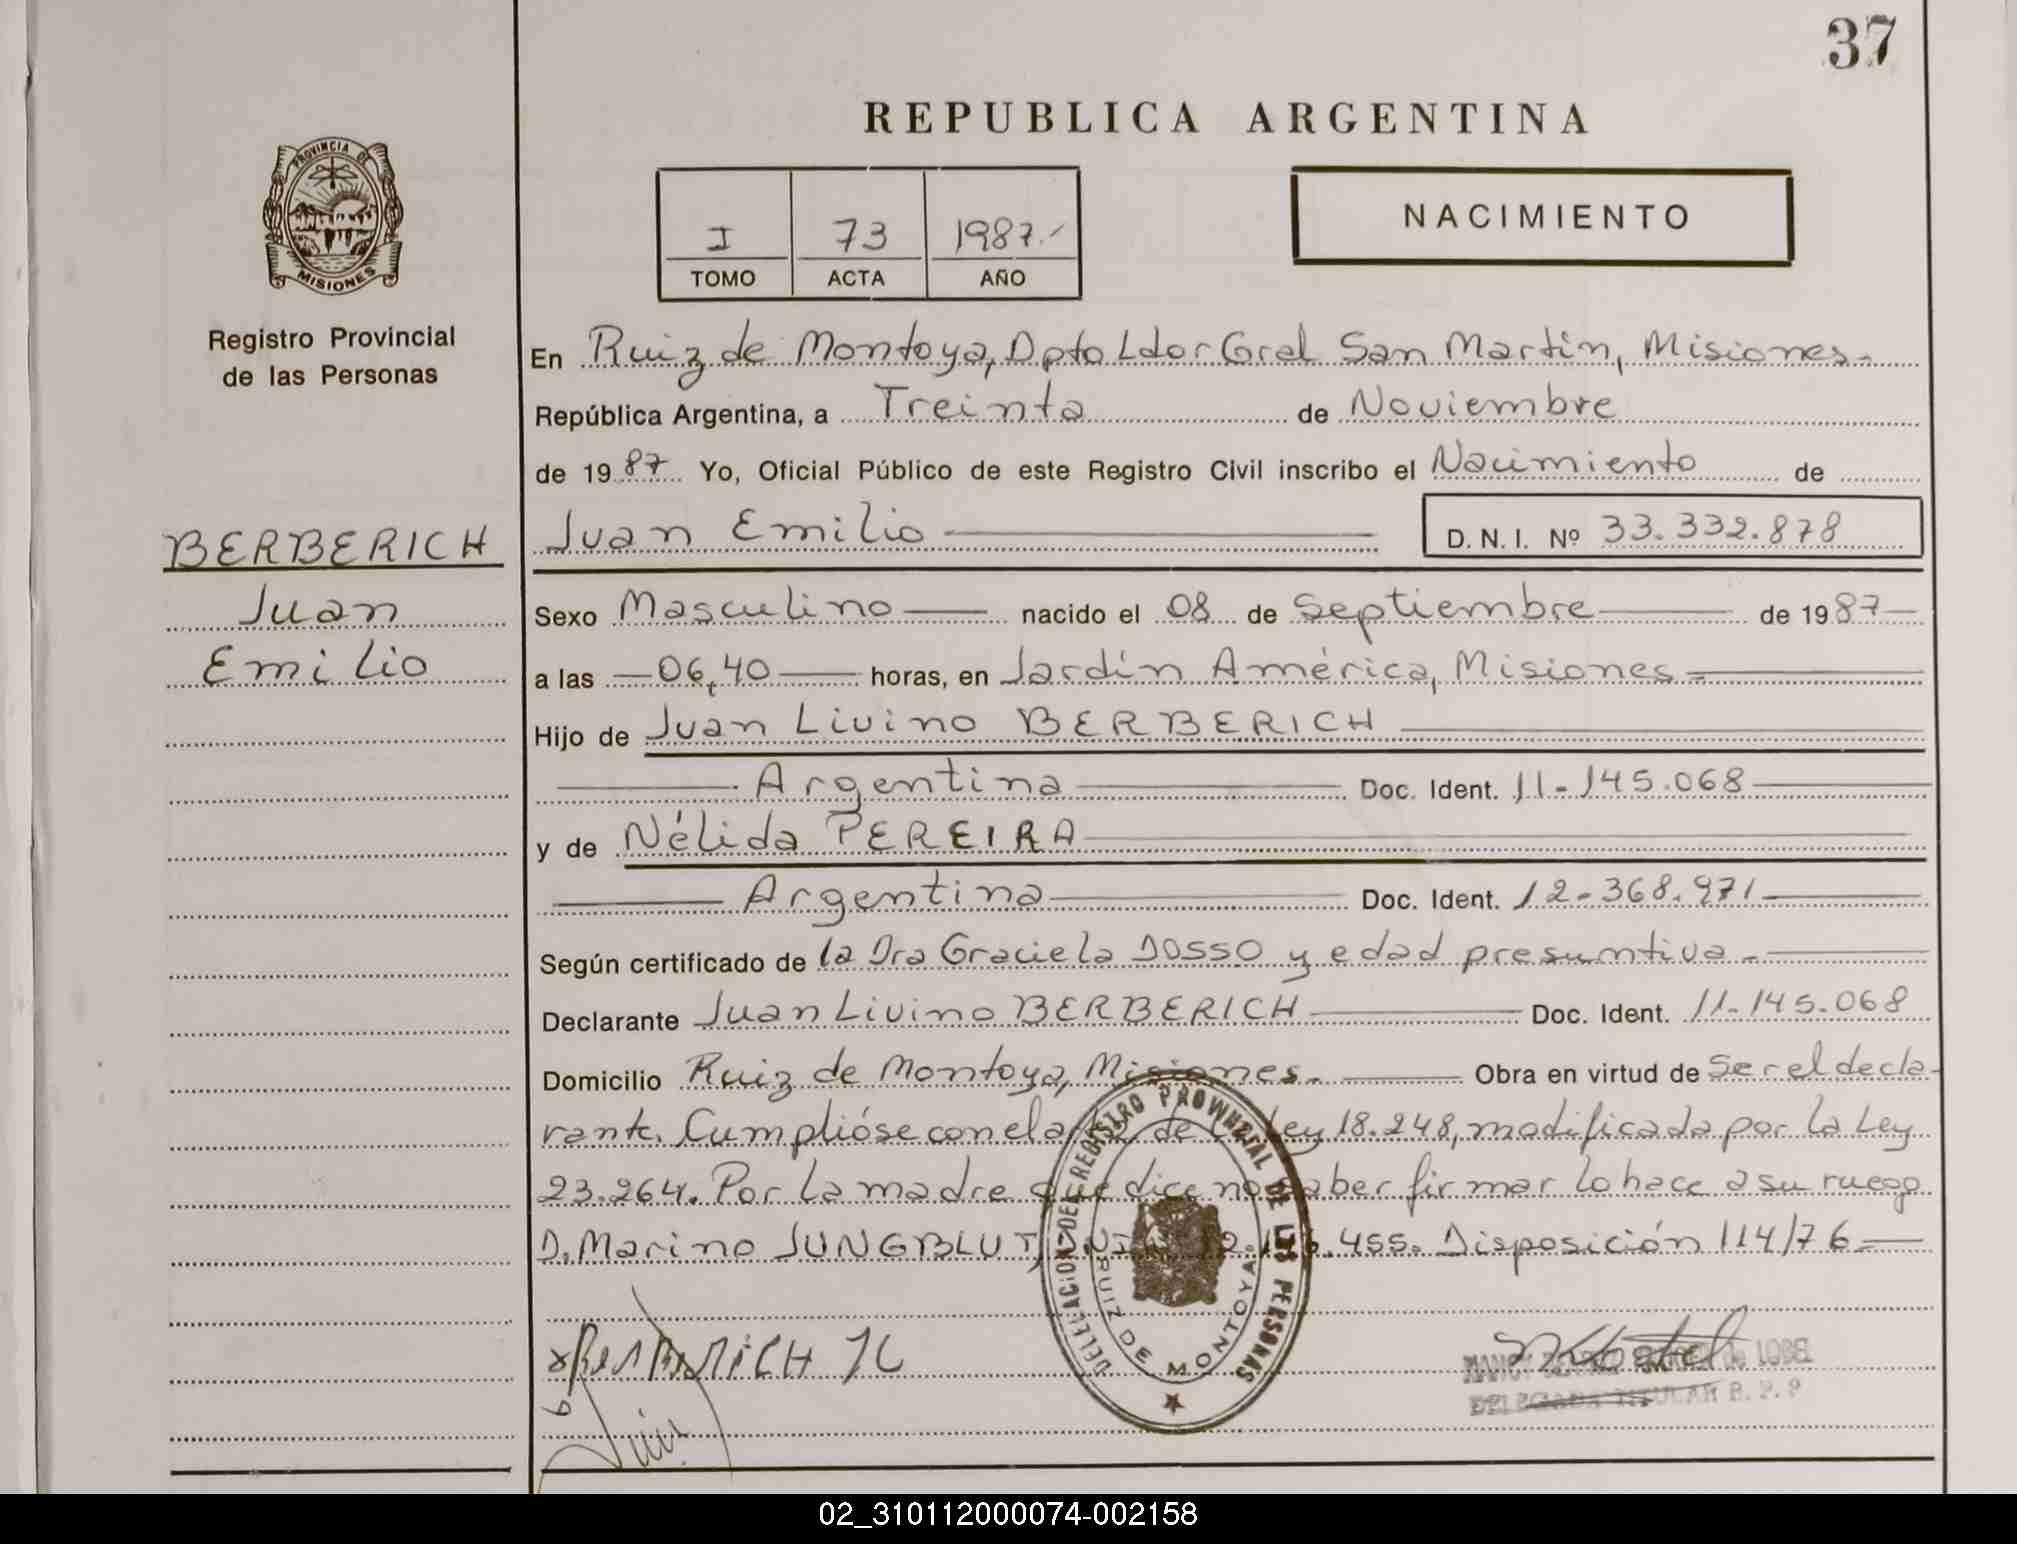 37
REPUBLICA ARGENTINA
PROVINCIA DE
MISIONES
Registro Provincial
de las Personas
I 73 1987.-
TOMO ACTA AÑO
NACIMIENTO
En Ruiz de Montoya, Dpto Ldor Gral San Martín, Misiones.-
República Argentina, a Treinta de Noviembre
de 1987 Yo, Oficial Público de este Registro Civil inscribo el Nacimiento de
BERBERICH
Juan
Emilio
Juan Emilio
D.N.I. Nº 33.332.878
Sexo Masculino nacido el 08 de Septiembre de 1987
a las 06,40 horas, en Jardín América, Misiones.-
Hijo de Juan Livino BERBERICH
Argentina Doc. Ident. 11-145.068
y de Nélida PEREIRA
Argentina Doc. Ident. 12-368.971
Según certificado de la Dra Graciela DOSSO y edad presuntiva.-
Declarante Juan Livino BERBERICH Doc. Ident. 11-145.068
Domicilio Ruiz de Montoya, Misiones.- Obra en virtud de Ser el decla-
rante. Cumplióse con el de Ley 18.248, modificada por la Ley
23.264. Por la madre que dice no saber firmar lo hace a su ruego
D. Marino JUNGBLUT, .455. Disposición 114/76
DELEGACION DEL REGISTRO PROVINCIAL DE LAS PERSONAS
RUIZ DE MONTOYA
BERBERICH JL
NANCY de LOBE
DELEGADA TITULAR R. P. P
02_310112000074-002158